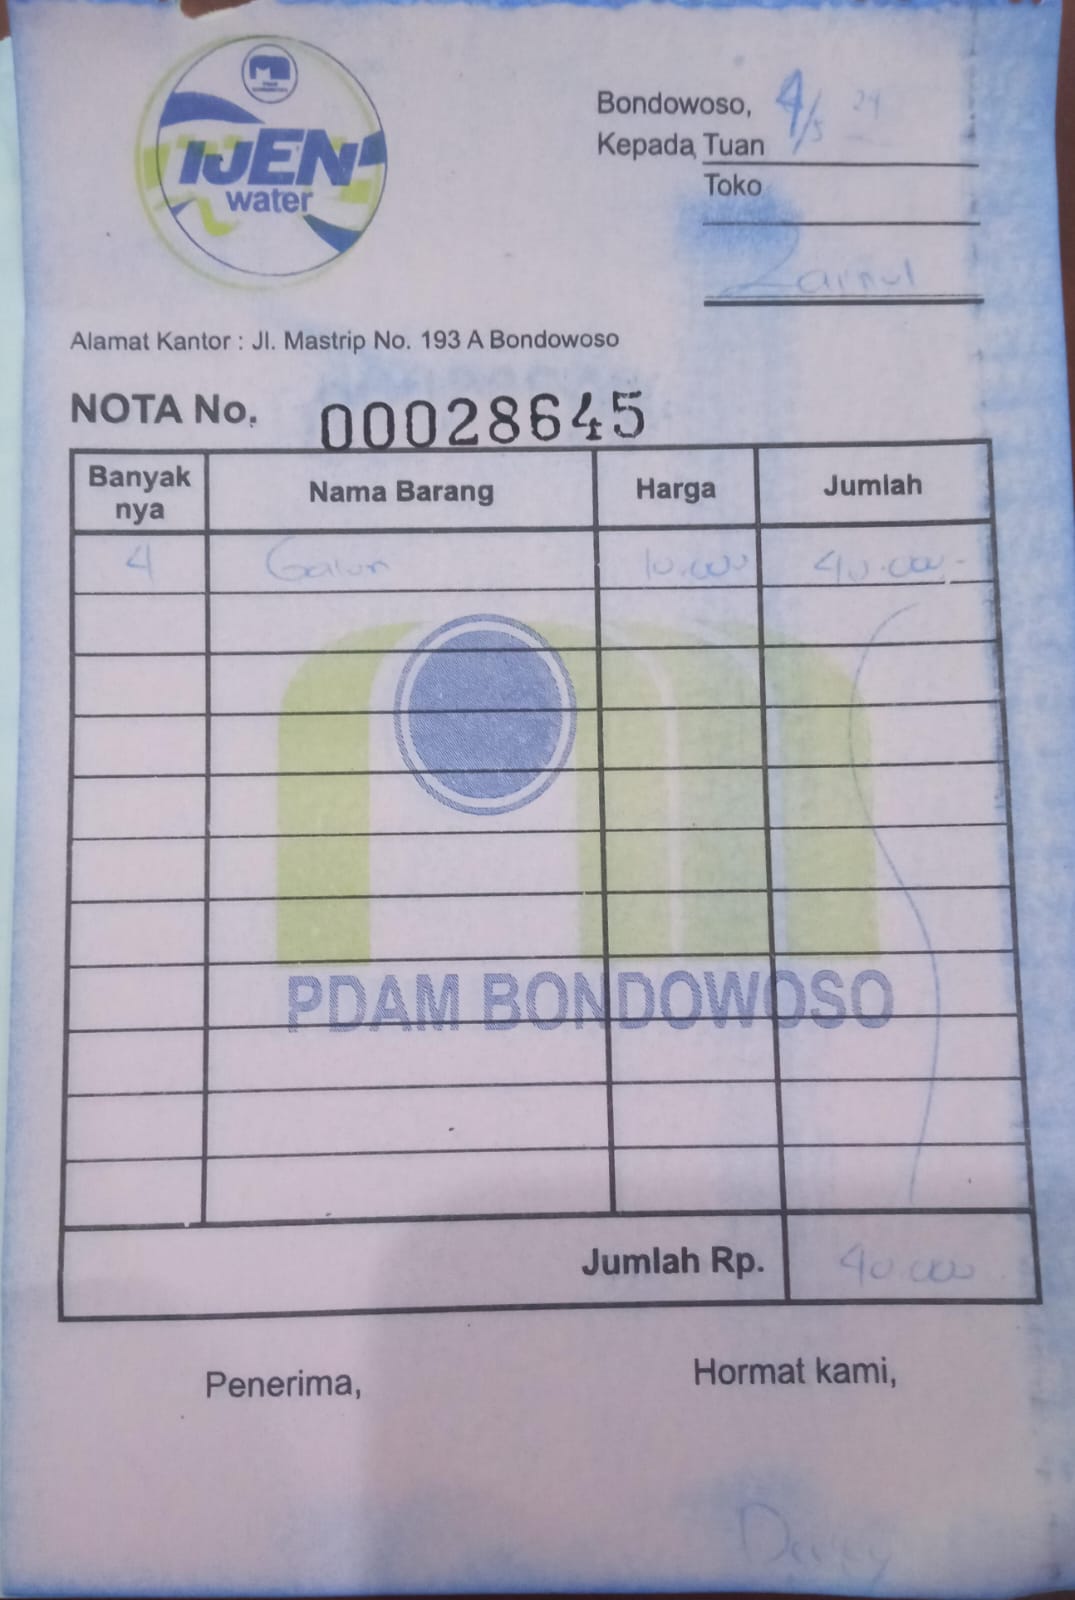 IJEN
water
Bondowoso, 4/5 24
Kepada Tuan
Toko
Zainul
Alamat Kantor : Jl. Mastrip No. 193 A Bondowoso
NOTA No. 00028645
Banyak nya Nama Barang Harga Jumlah
4 Galon 10.000 40.000,-
PDAM BONDOWOSO
Jumlah Rp. 40.000
Penerima, Hormat kami,